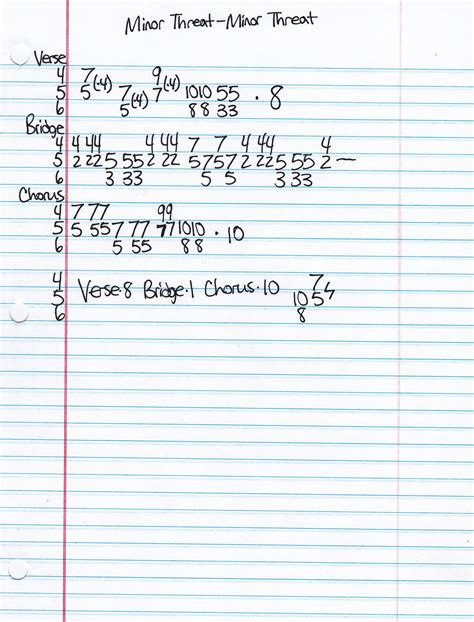 Minor Threat-Minor Threat
Verse
4 7(·4) 9(·4)
5 5 7(·4) 7 1010 55 · 8
6 5 88 33
Bridge
4 4 44 4 44 7 7 4 44 4
5 2 22 5 55 2 22 5 7 5 7 2 22 5 55 2 —
6 3 33 5 5 3 33
Chorus
4 7 77 99
5 5 55 7 77 77 1010 · 10
6 5 55 88
4 7
5 Verse·8 Bridge·1 Chorus·10 10 5
6 8